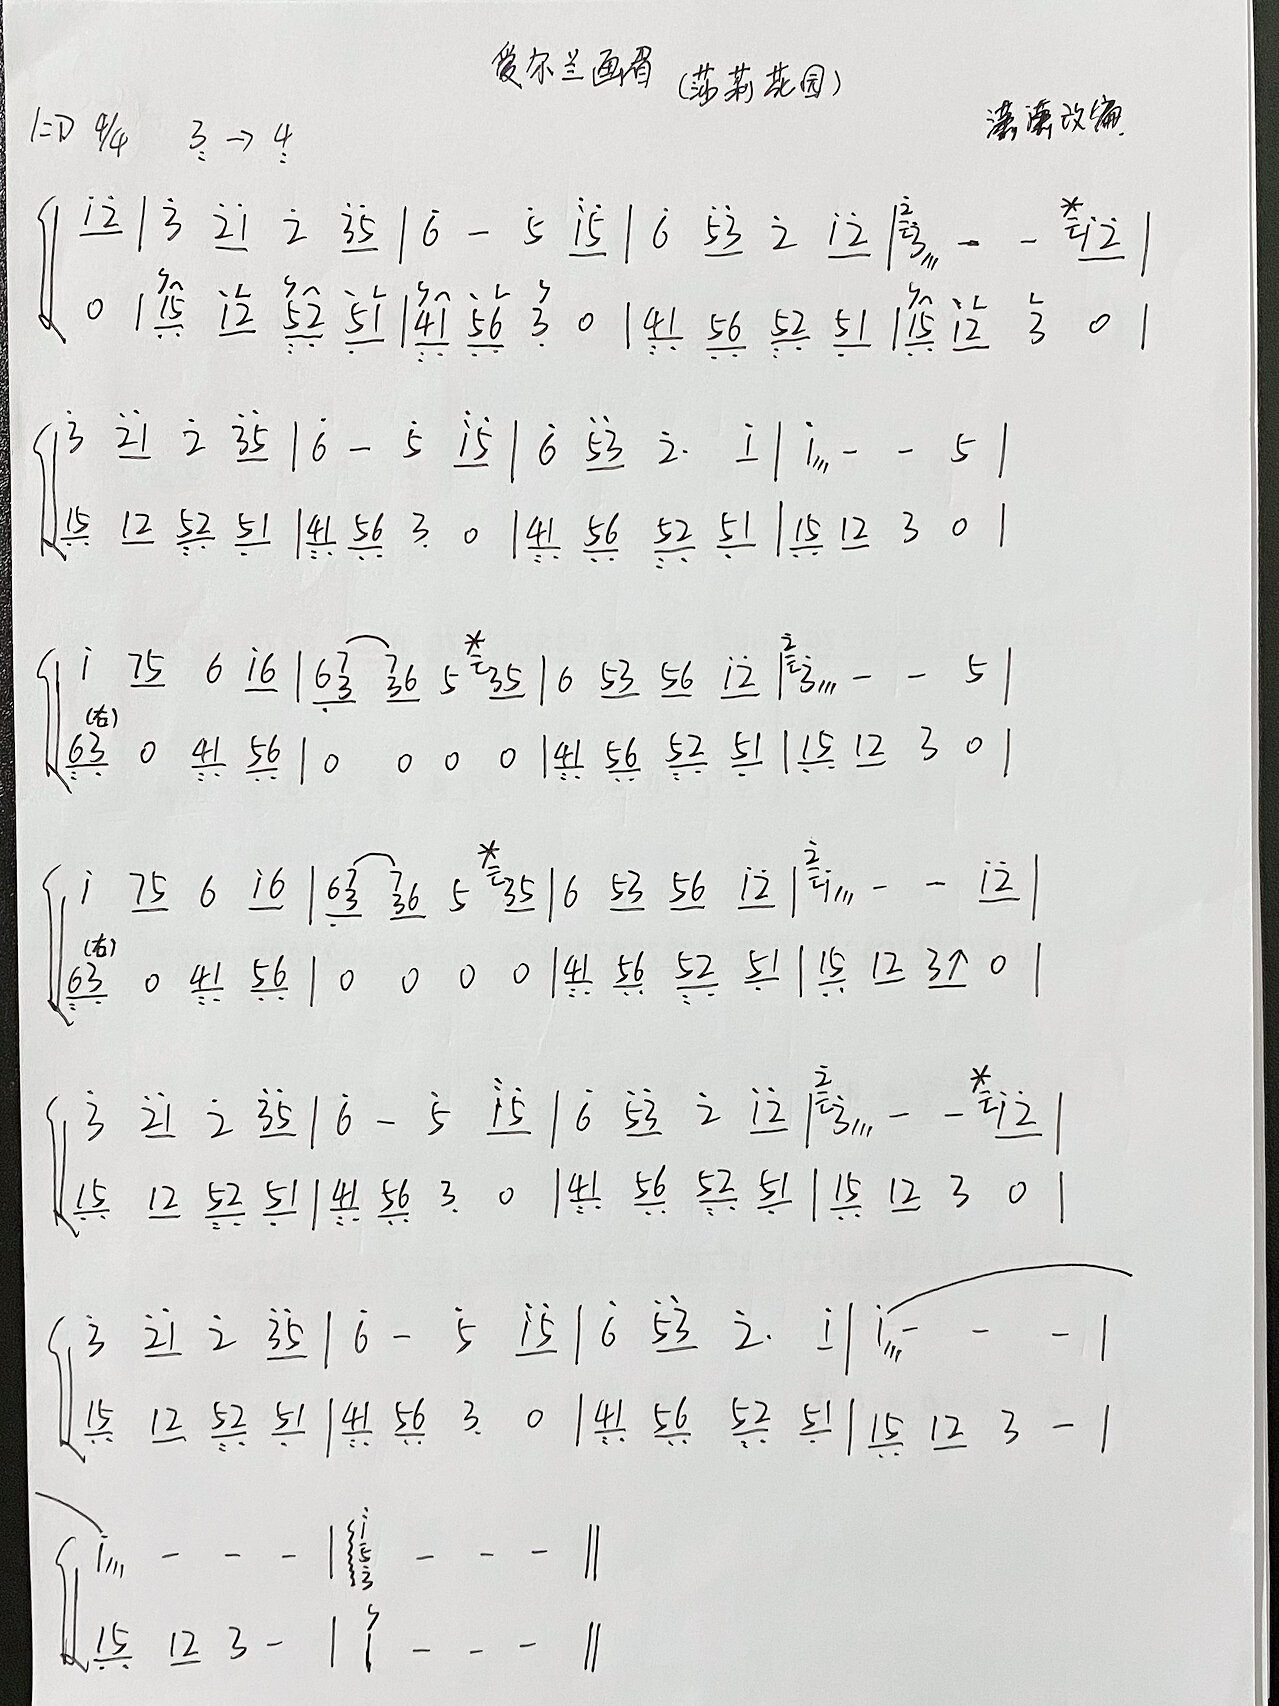 爱尔兰画眉 (莎莉花园)
潇潇改编
1=D 4/4 3̣ → 4̣
i̇2̇ | 3̇ 2̇1̇ 2̇ 3̇5̇ | 6̇ - 5̇ i̇5̇ | 6̇ 5̇3̇ 2̇ i̇2̇ | 2̇3̇,,, - - *i̇2̇ |
0 | 15 12 52 51 | 41 56 3 0 | 41 56 52 51 | 15 12 3 0 |
3̇ 2̇1̇ 2̇ 3̇5̇ | 6̇ - 5̇ i̇5̇ | 6̇ 5̇3̇ 2̇· i̇ | i̇,,, - - 5 |
15 12 52 51 | 41 56 3 0 | 41 56 52 51 | 15 12 3 0 |
i̇ 75 6 i̇6 | 63 36 5 *35 | 6 53 56 i̇2̇ | 2̇3̇,,, - - 5 |
(右)
63 0 41 56 | 0 0 0 0 | 41 56 52 51 | 15 12 3 0 |
i̇ 75 6 i̇6 | 63 36 5 *35 | 6 53 56 i̇2̇ | 2̇i̇,,, - - i̇2̇ |
(右)
63 0 41 56 | 0 0 0 0 | 41 56 52 51 | 15 12 3↑ 0 |
3̇ 2̇1̇ 2̇ 3̇5̇ | 6̇ - 5̇ i̇5̇ | 6̇ 5̇3̇ 2̇ i̇2̇ | 2̇3̇,,, - - *i̇2̇ |
15 12 52 51 | 41 56 3 0 | 41 56 52 51 | 15 12 3 0 |
3̇ 2̇1̇ 2̇ 3̇5̇ | 6̇ - 5̇ i̇5̇ | 6̇ 5̇3̇ 2̇· i̇ | i̇,,, - - - |
15 12 52 51 | 41 56 3 0 | 41 56 52 51 | 15 12 3 - |
i̇,,, - - - | i̇53 - - - ‖
15 12 3 - | 1 - - - ‖